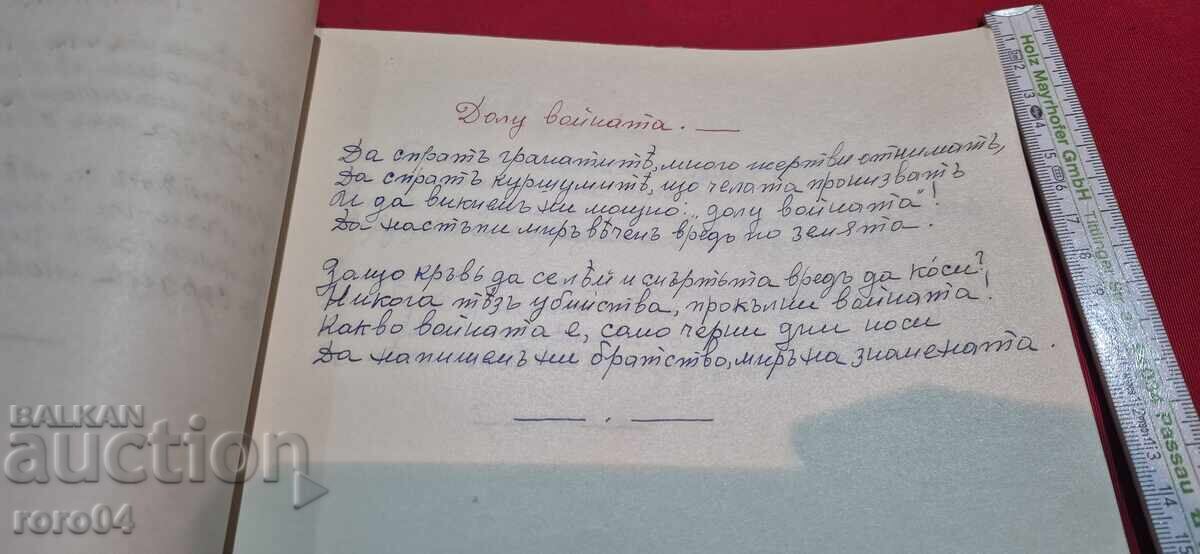 Долу войната. —
Да спратъ гранатитѣ, много жертви отниматъ,
Да спратъ куршумитѣ, що челата пронизватъ
И да викнемъ ни мощно: „долу войната"!
Да настъпи миръ вѣченъ вредъ по земята.
Защо кръвь да се лѣй и смъртьта вредъ да коси?
Никога тѣзъ убийства, прокълни войната!
Какво войната е, само черни дим носи
Да напишемъ ни братство, миръ на знамената.
Holz Mayrhofer GmbH
BALKAN
auction
roro04